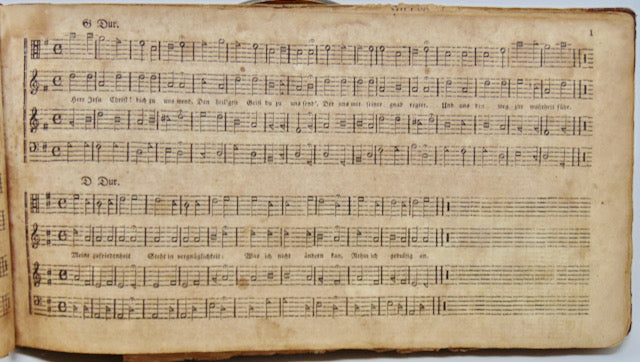 1
G Dur.
Herr Jesu Christ! dich zu uns wend, Den heil'gen Geist du zu uns send', Der uns mit seiner gnad regier, Und uns den weg zur wahrheit führ.
D Dur.
Meine zufriedenheit Steht in vergnüglichkeit: Was ich nicht ändern kan, Nehm ich gedultig an.